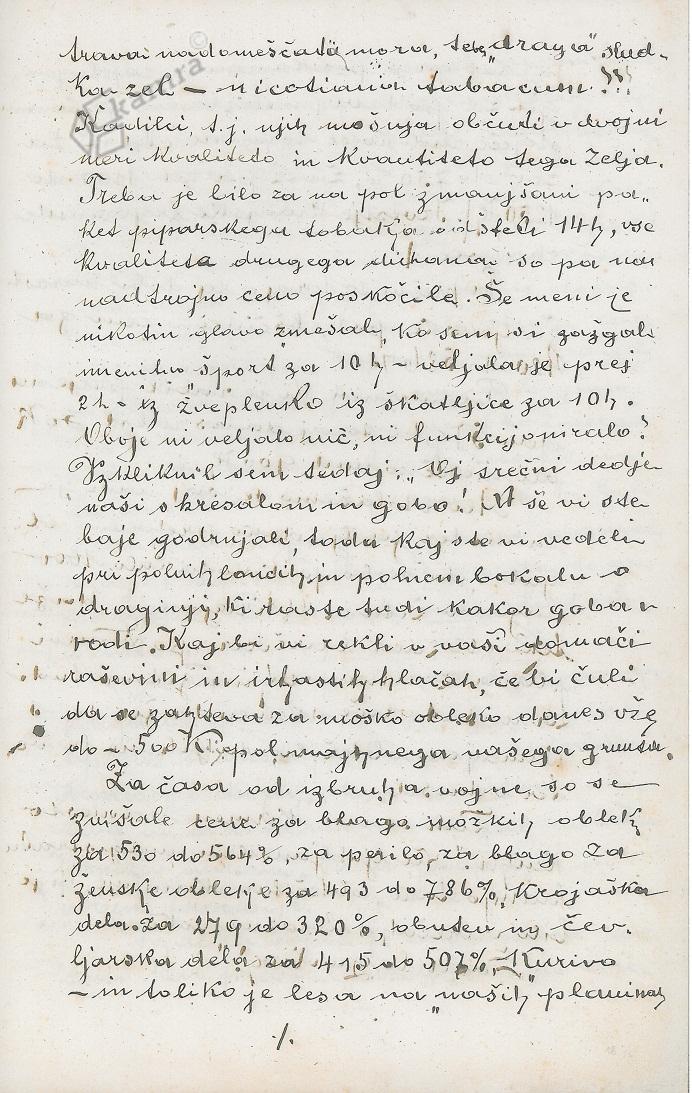 trava nadomeščati mora, tebe, „draga" slad-
ka zel — nicotiania tabacum!!!
Kadilci, t. j. njih mošnja občuti v dvojni
meri kvaliteto in kvantiteto tega zelja.
Treba je bilo za na pol zmanjšani pa„
ket piparskega tobaka odšteti 14 h, vse
kvalitete drugega duhana so pa na
nadtrojno ceno poskočile. Še meni je
nikotin glavo zmešal, ko sem si zažgal
imenitno „šport" za 10 h – veljala je prej
2 h – iz žveplenko iz škatljice za 10 h.
Oboje ni veljalo nič, ni funkcijoniralo!
Vzkliknil sem tedaj: „Oj srečni dedje
naši s kresalom in gobo! A še vi ste
baje godrnjali, toda kaj ste vi vedeli
pri polnih loncih in polnem bokalu o
draginji, ki raste tudi kakor goba
vodi. Kaj bi vi rekli v vaši domači
raševini in irhastih hlačah, če bi čuli
da se zahteva za moško obleko danes vže
do – 500 K, pol majhnega vašega grunta.
Za časa od izbruha vojne so se
zvišale cene za blago možkih oblek
za 530 do 564%, za perilo, za blago za
ženske obleke za 493 do 786%, krojaška
dela za 279 do 320%, obutev in čev-
ljarska dela za 415 do 507%, Kurivo
– in toliko je lesa na „naših" planinah
./.
kamra